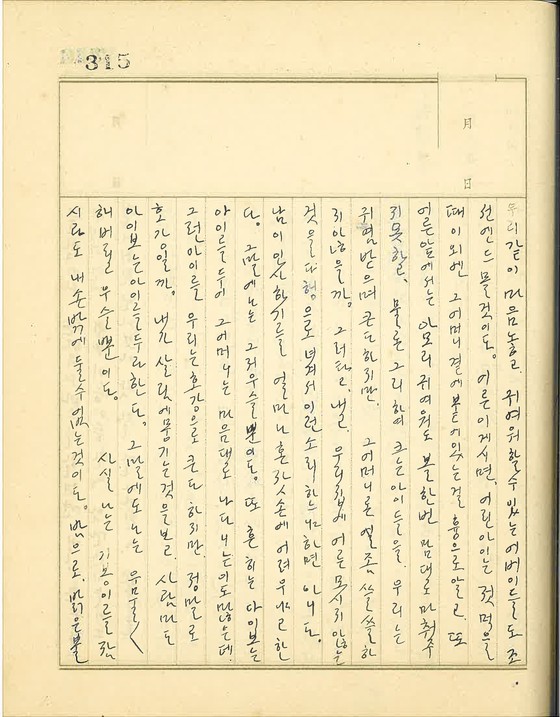 315
月
日
우리같이 마음놓고 귀여워할수있는 어버이들도 조
선엔 드믈것이다。 어른이 계시면、 어린아이는 젖먹을
때 이외엔 그어머니 곁에 붙어있는걸 흉으로알고 또
어른앞에서는 아모리 귀여워도 볼한번 맘대로 마춰주
지못하고、 물론 그리하여 크는아이들을 우리는
귀염받으며 큰다하지만、 그어머니론 얼 좀 쓸쓸하
지않을까。 그러타고、 내가 우리집에 어른 모시지 않은
것을 다행으로 녁여서 이런소리 하느냐하면 아니다。
남이 인사하기를 얼마나 혼잣손에 어려우냐고 한
다。 그말에 나는 그저 우슬뿐이다。 또 흔히는 아이보는
아이를 두어 그어머니는 마음대로 나다니는이도 많은데、
그런아이를 우리는 호강으로 큰다 하지만 정말로
호강일까。 내가 살림에 뭉기는것을보고 사람마다
아이보는아이를 두라한다。 그말에도 나는 우물〱
해버릴 우슬뿐이다。 사실 나는 기봉이를 잠
시라도 내손밖에 둘수없는것이다。 밤으로、 맑은물